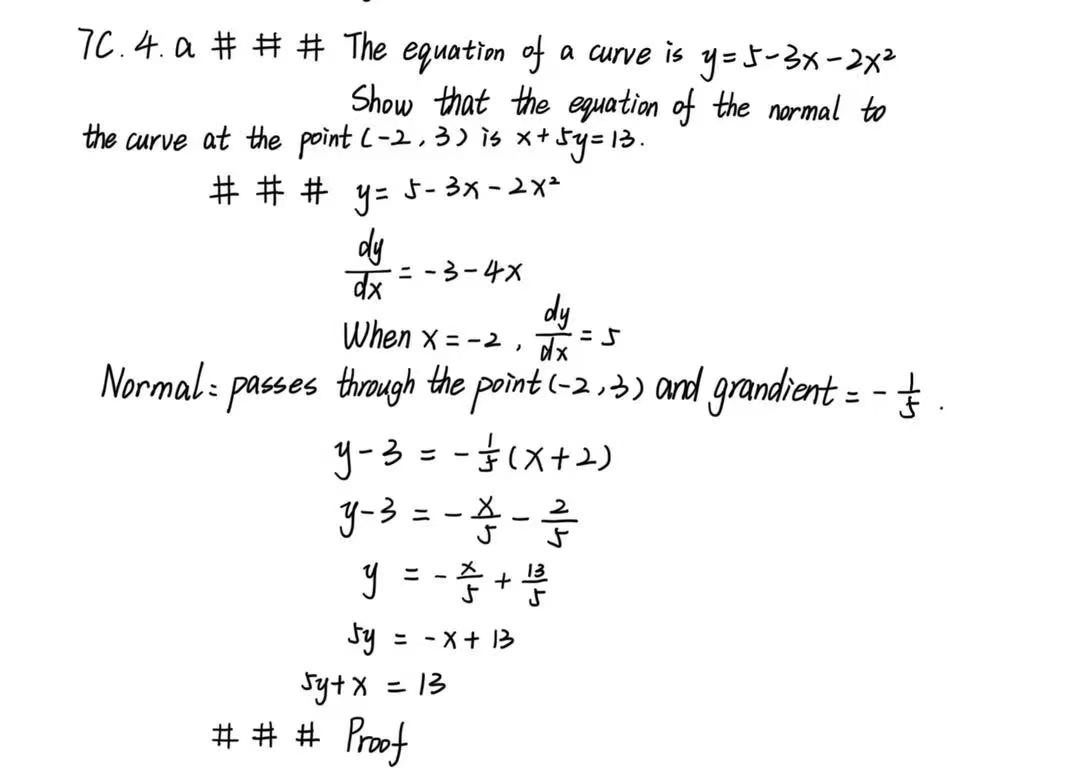 7C.4.a # # # The equation of a curve is y=5-3x-2x²
Show that the equation of the normal to
the curve at the point (-2,3) is x+5y=13.
# # # y= 5-3x-2x²
dy/dx = -3-4x
When x=-2, dy/dx = 5
Normal: passes through the point (-2,3) and grandient = -1/5.
y-3 = -1/5(x+2)
y-3 = -x/5 - 2/5
y = -x/5 + 13/5
5y = -x+13
5y+x = 13
# # # Proof